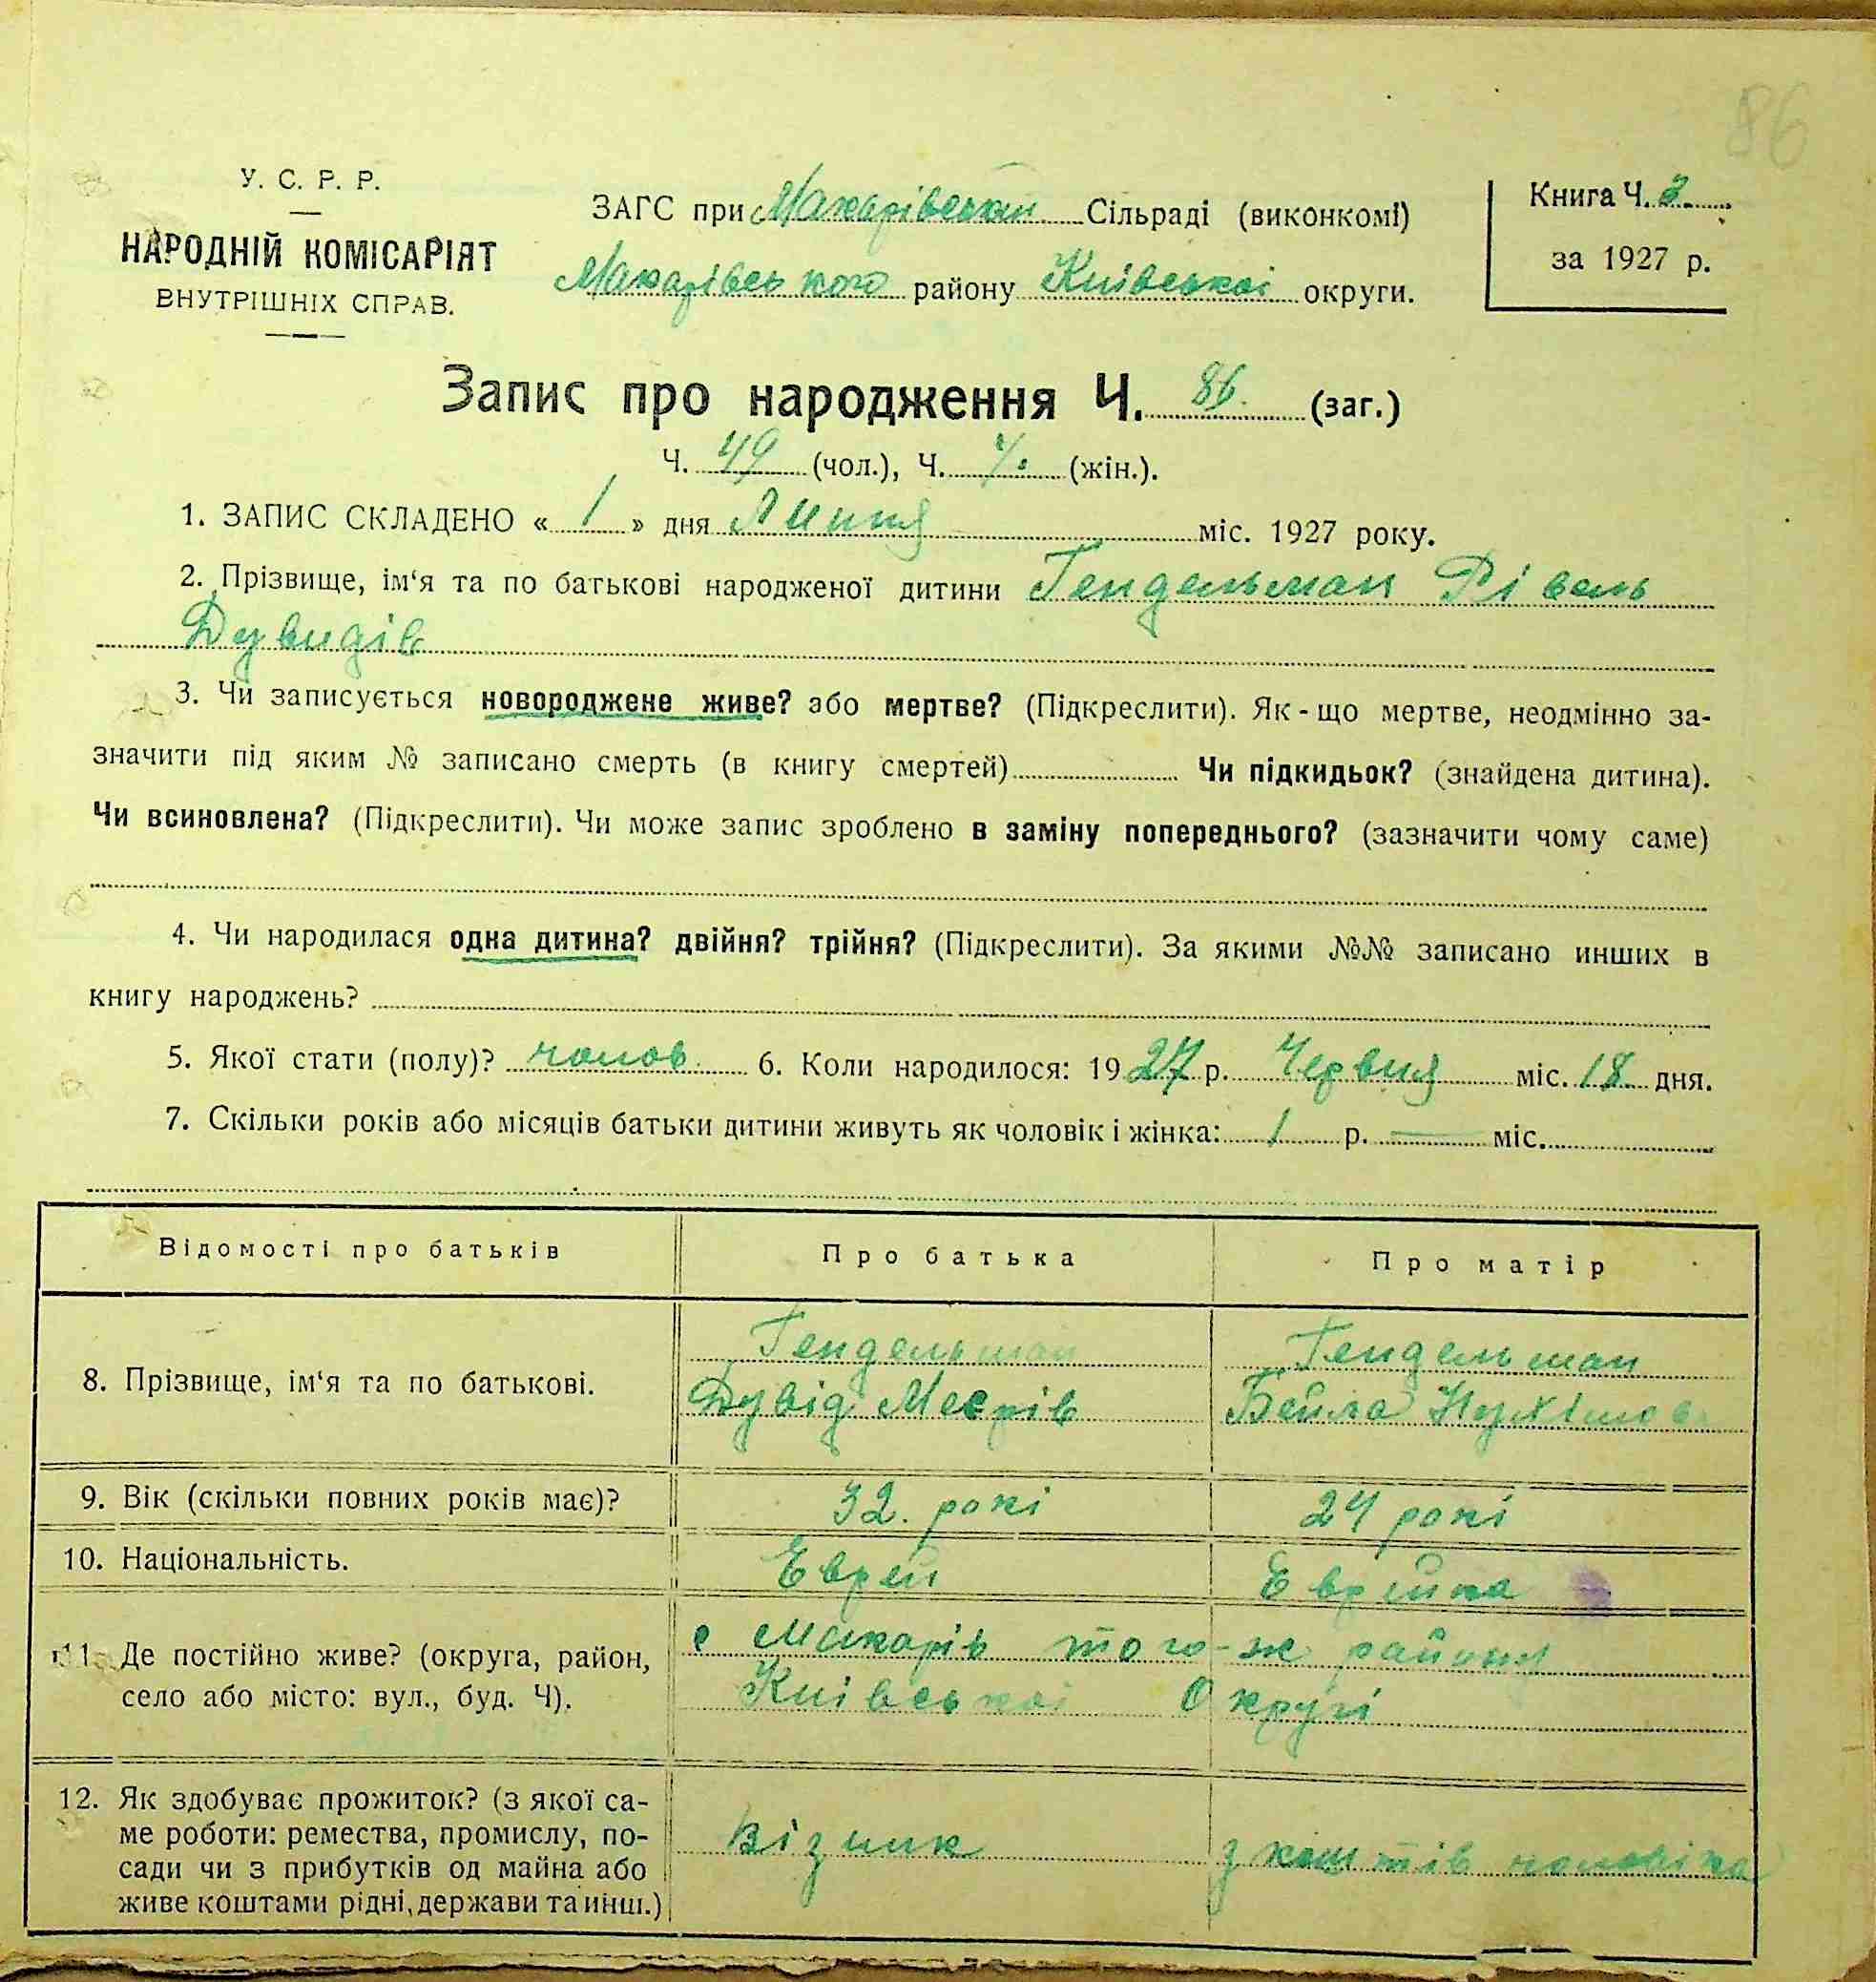 86
У. С. Р. Р.
НАРОДНІЙ КОМІСАРІЯТ
ВНУТРІШНІХ СПРАВ.
ЗАГС при Макарівській Сільраді (виконкомі)
Макарівського району Київської округи.
Книга Ч. 3
за 1927 р.
Запис про народження Ч. 86. (заг.)
Ч. 49 (чол.), Ч. (жін.).
1. ЗАПИС СКЛАДЕНО « 1 » дня Липня міс. 1927 року.
2. Прізвище, ім‘я та по батькові народженої дитини Гендельман Рівель
Дувидів
3. Чи записується новороджене живе? або мертве? (Підкреслити). Як-що мертве, неодмінно за-
значити під яким № записано смерть (в книгу смертей) Чи підкидьок? (знайдена дитина).
Чи всиновлена? (Підкреслити). Чи може запис зроблено в заміну попереднього? (зазначити чому саме)
4. Чи народилася одна дитина? двійня? трійня? (Підкреслити). За якими №№ записано инших в
книгу народжень?
5. Якої стати (полу)? чолов. 6. Коли народилося: 1927 р. Червня міс. 18 дня.
7. Скільки років або місяців батьки дитини живуть як чоловік і жінка: 1 р. — міс.
Відомості про батьків Про батька Про матір
8. Прізвище, ім‘я та по батькові. Гендельман Гендельман
Дувід Меєрів Бейла Нухімов
9. Вік (скільки повних років має)? 32. рокі 24 рокі
10. Національність. Еврей Еврейка
11. Де постійно живе? (округа, район,
село або місто: вул., буд. Ч).
с Макарів того-ж району
Київської Округі
12. Як здобуває прожиток? (з якої са-
ме роботи: ремества, промислу, по-
сади чи з прибутків од майна або
живе коштами рідні, держави та инш.)
візник з коштів чоловіка